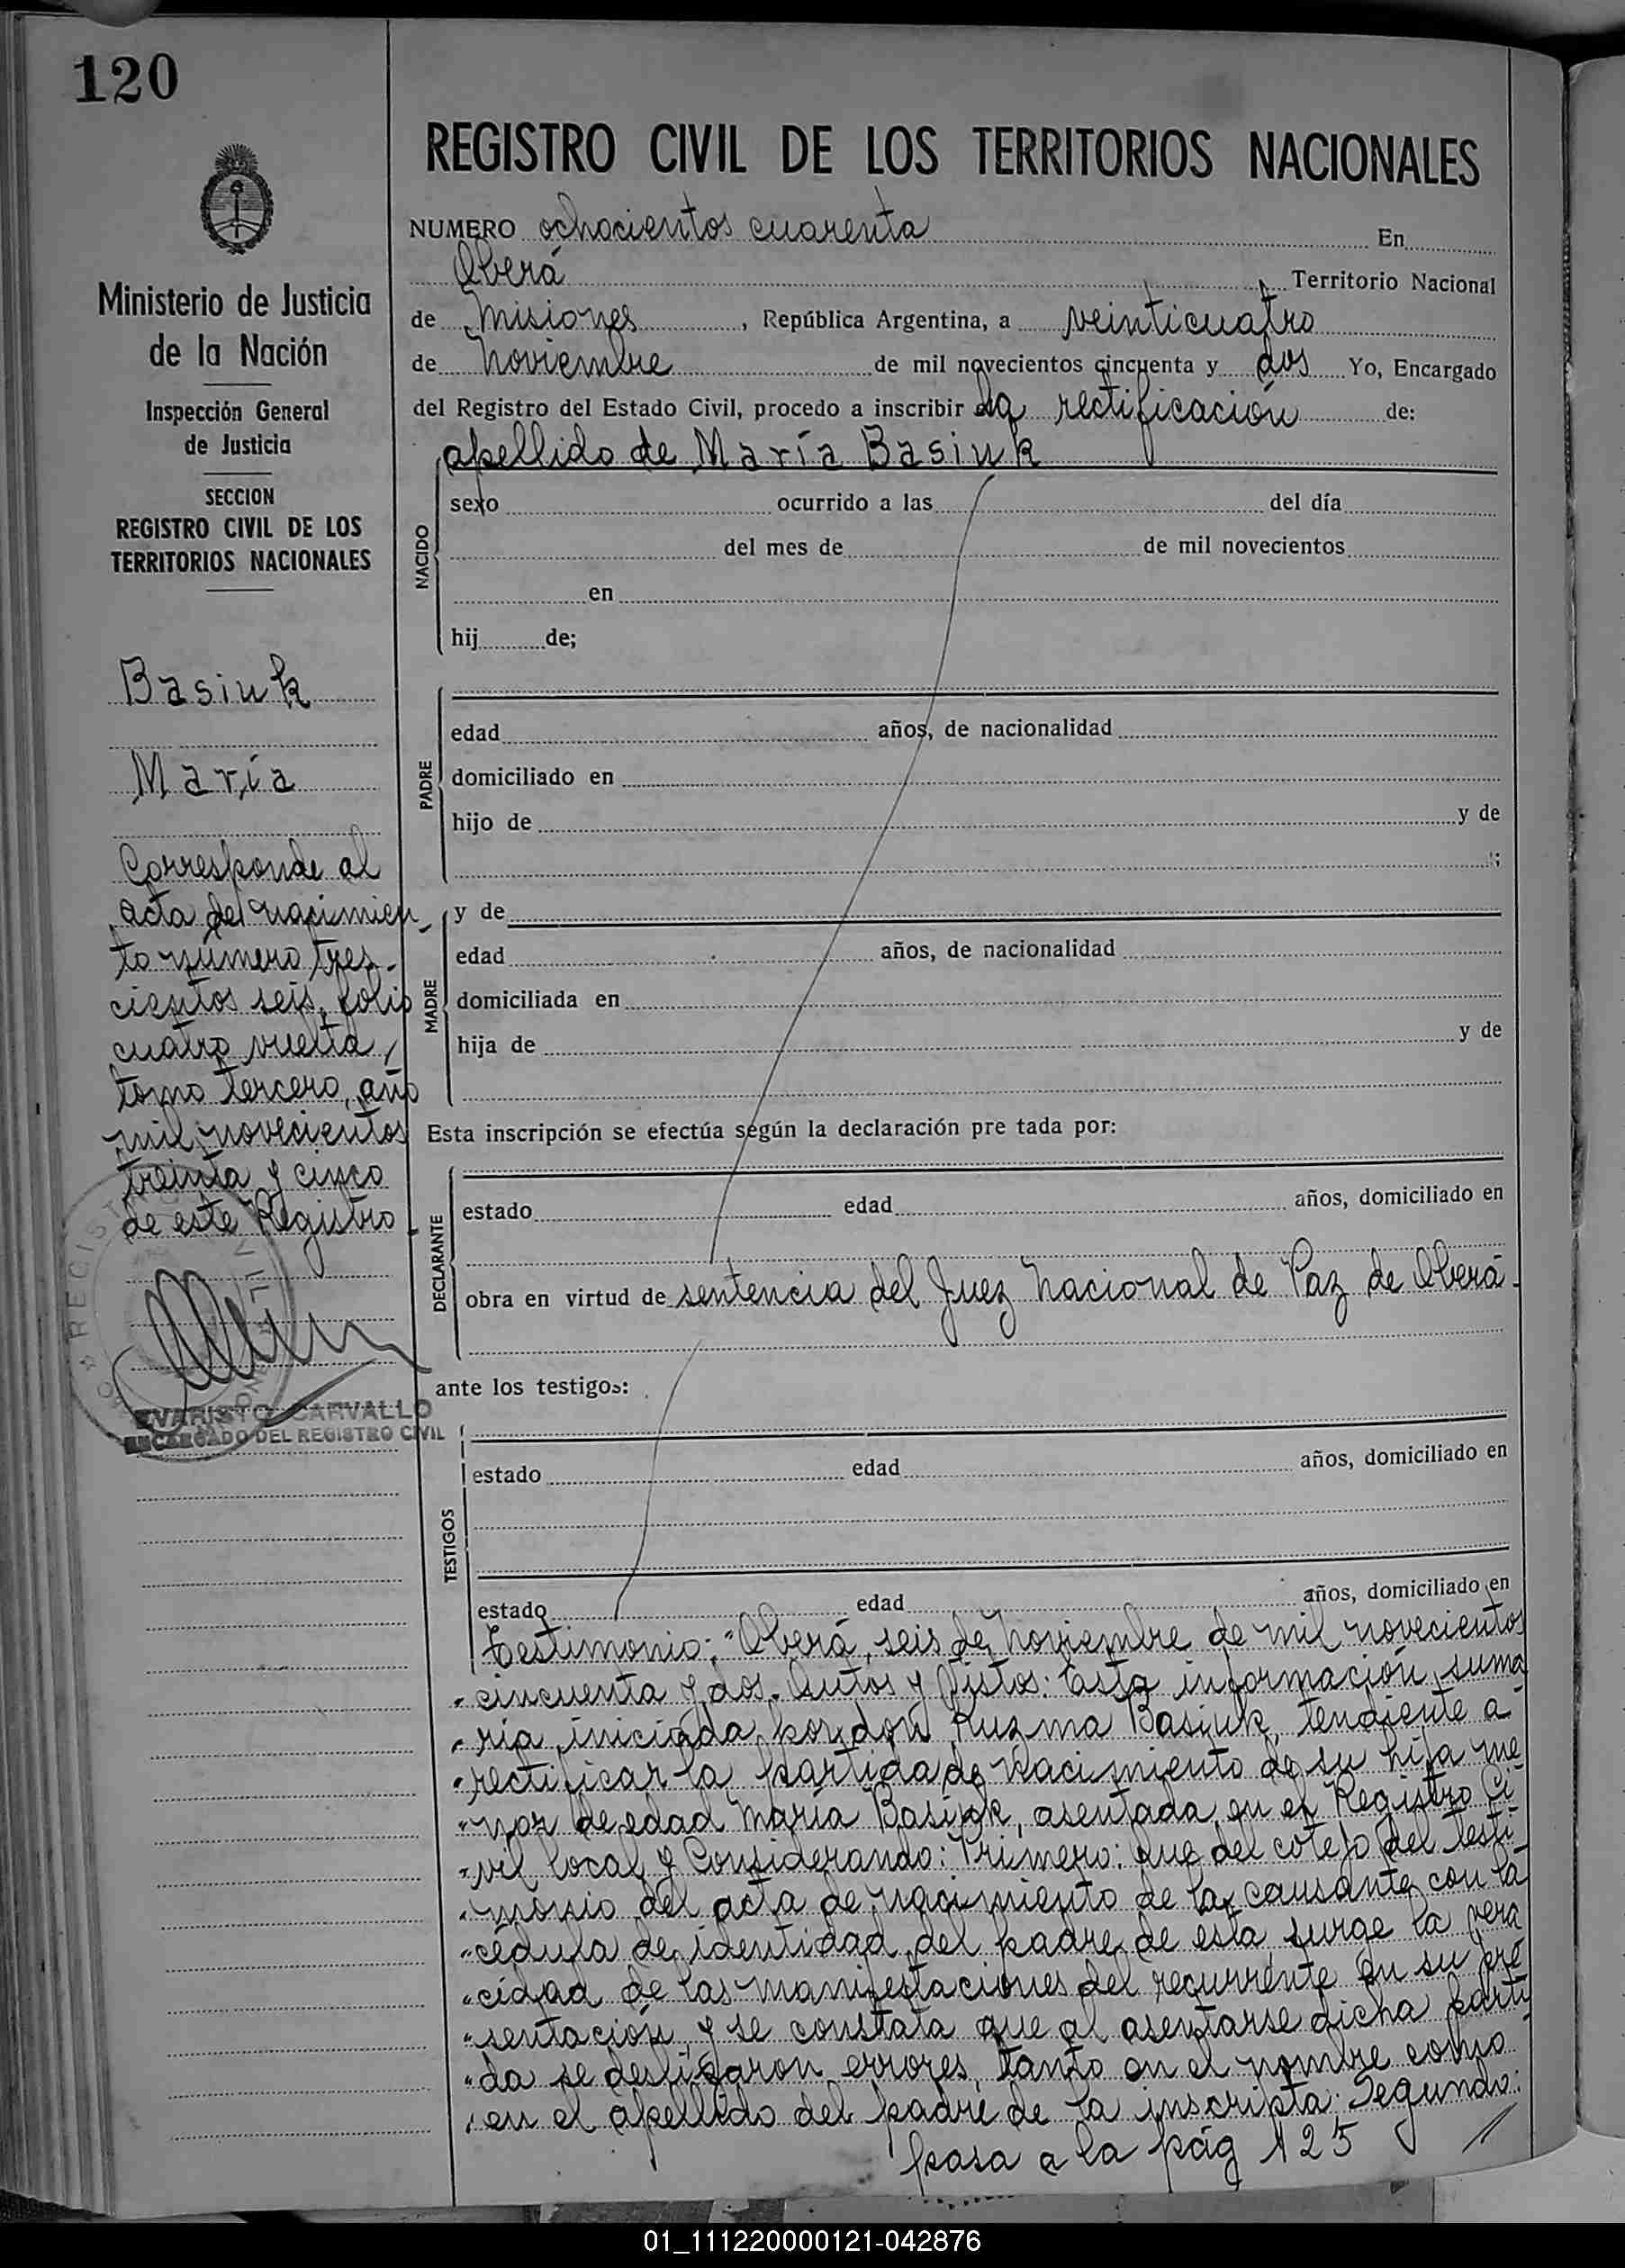 120
Ministerio de Justicia
de la Nación
Inspección General
de Justicia
SECCION
REGISTRO CIVIL DE LOS
TERRITORIOS NACIONALES
Basiuk
María
Corresponde al
acta de nacimien-
to número tres-
cientos seis, folio
cuatro vuelta,
tomo tercero, año
mil novecientos
treinta y cinco
de este Registro.
EVARISTO CARVALLO
ENCARGADO DEL REGISTRO CIVIL
REGISTRO CIVIL DE LOS TERRITORIOS NACIONALES
NUMERO ochocientos cuarenta En
Oberá Territorio Nacional
de Misiones, República Argentina, a veinticuatro
de Noviembre de mil novecientos cincuenta y dos Yo, Encargado
del Registro del Estado Civil, procedo a inscribir la rectificación de:
apellido de María Basiuk
NACIDO
sexo ocurrido a las del día
del mes de de mil novecientos
en
hij de;
PADRE
edad años, de nacionalidad
domiciliado en
hijo de y de
;
MADRE
y de
edad años, de nacionalidad
domiciliada en
hija de y de
Esta inscripción se efectúa según la declaración pre tada por:
DECLARANTE
estado edad años, domiciliado en
obra en virtud de sentencia del Juez Nacional de Paz de Oberá.
ante los testigos:
TESTIGOS
estado edad años, domiciliado en
estado edad años, domiciliado en
Testimonio: "Oberá, seis de Noviembre de mil novecientos
"cincuenta y dos. Autos y Vistos: Esta información suma
"ria iniciada por don Kuzma Basiuk, tendiente a
"rectificar la partida de nacimiento de su hija me
"nor de edad María Basiuk, asentada en el Registro Ci
"vil local y Considerando: Primero: Que del cotejo del testi
"monio del acta de nacimiento de la causante con la
"cédula de identidad del padre de esta surge la vera
"cidad de las manifestaciones del recurrente en su pre
"sentación, y se constata que al asentarse dicha parti
"da se deslizaron errores, tanto en el nombre como
"en el apellido del padre de la inscripta. Segundo:
pasa a la pág 125
01_111220000121-042876